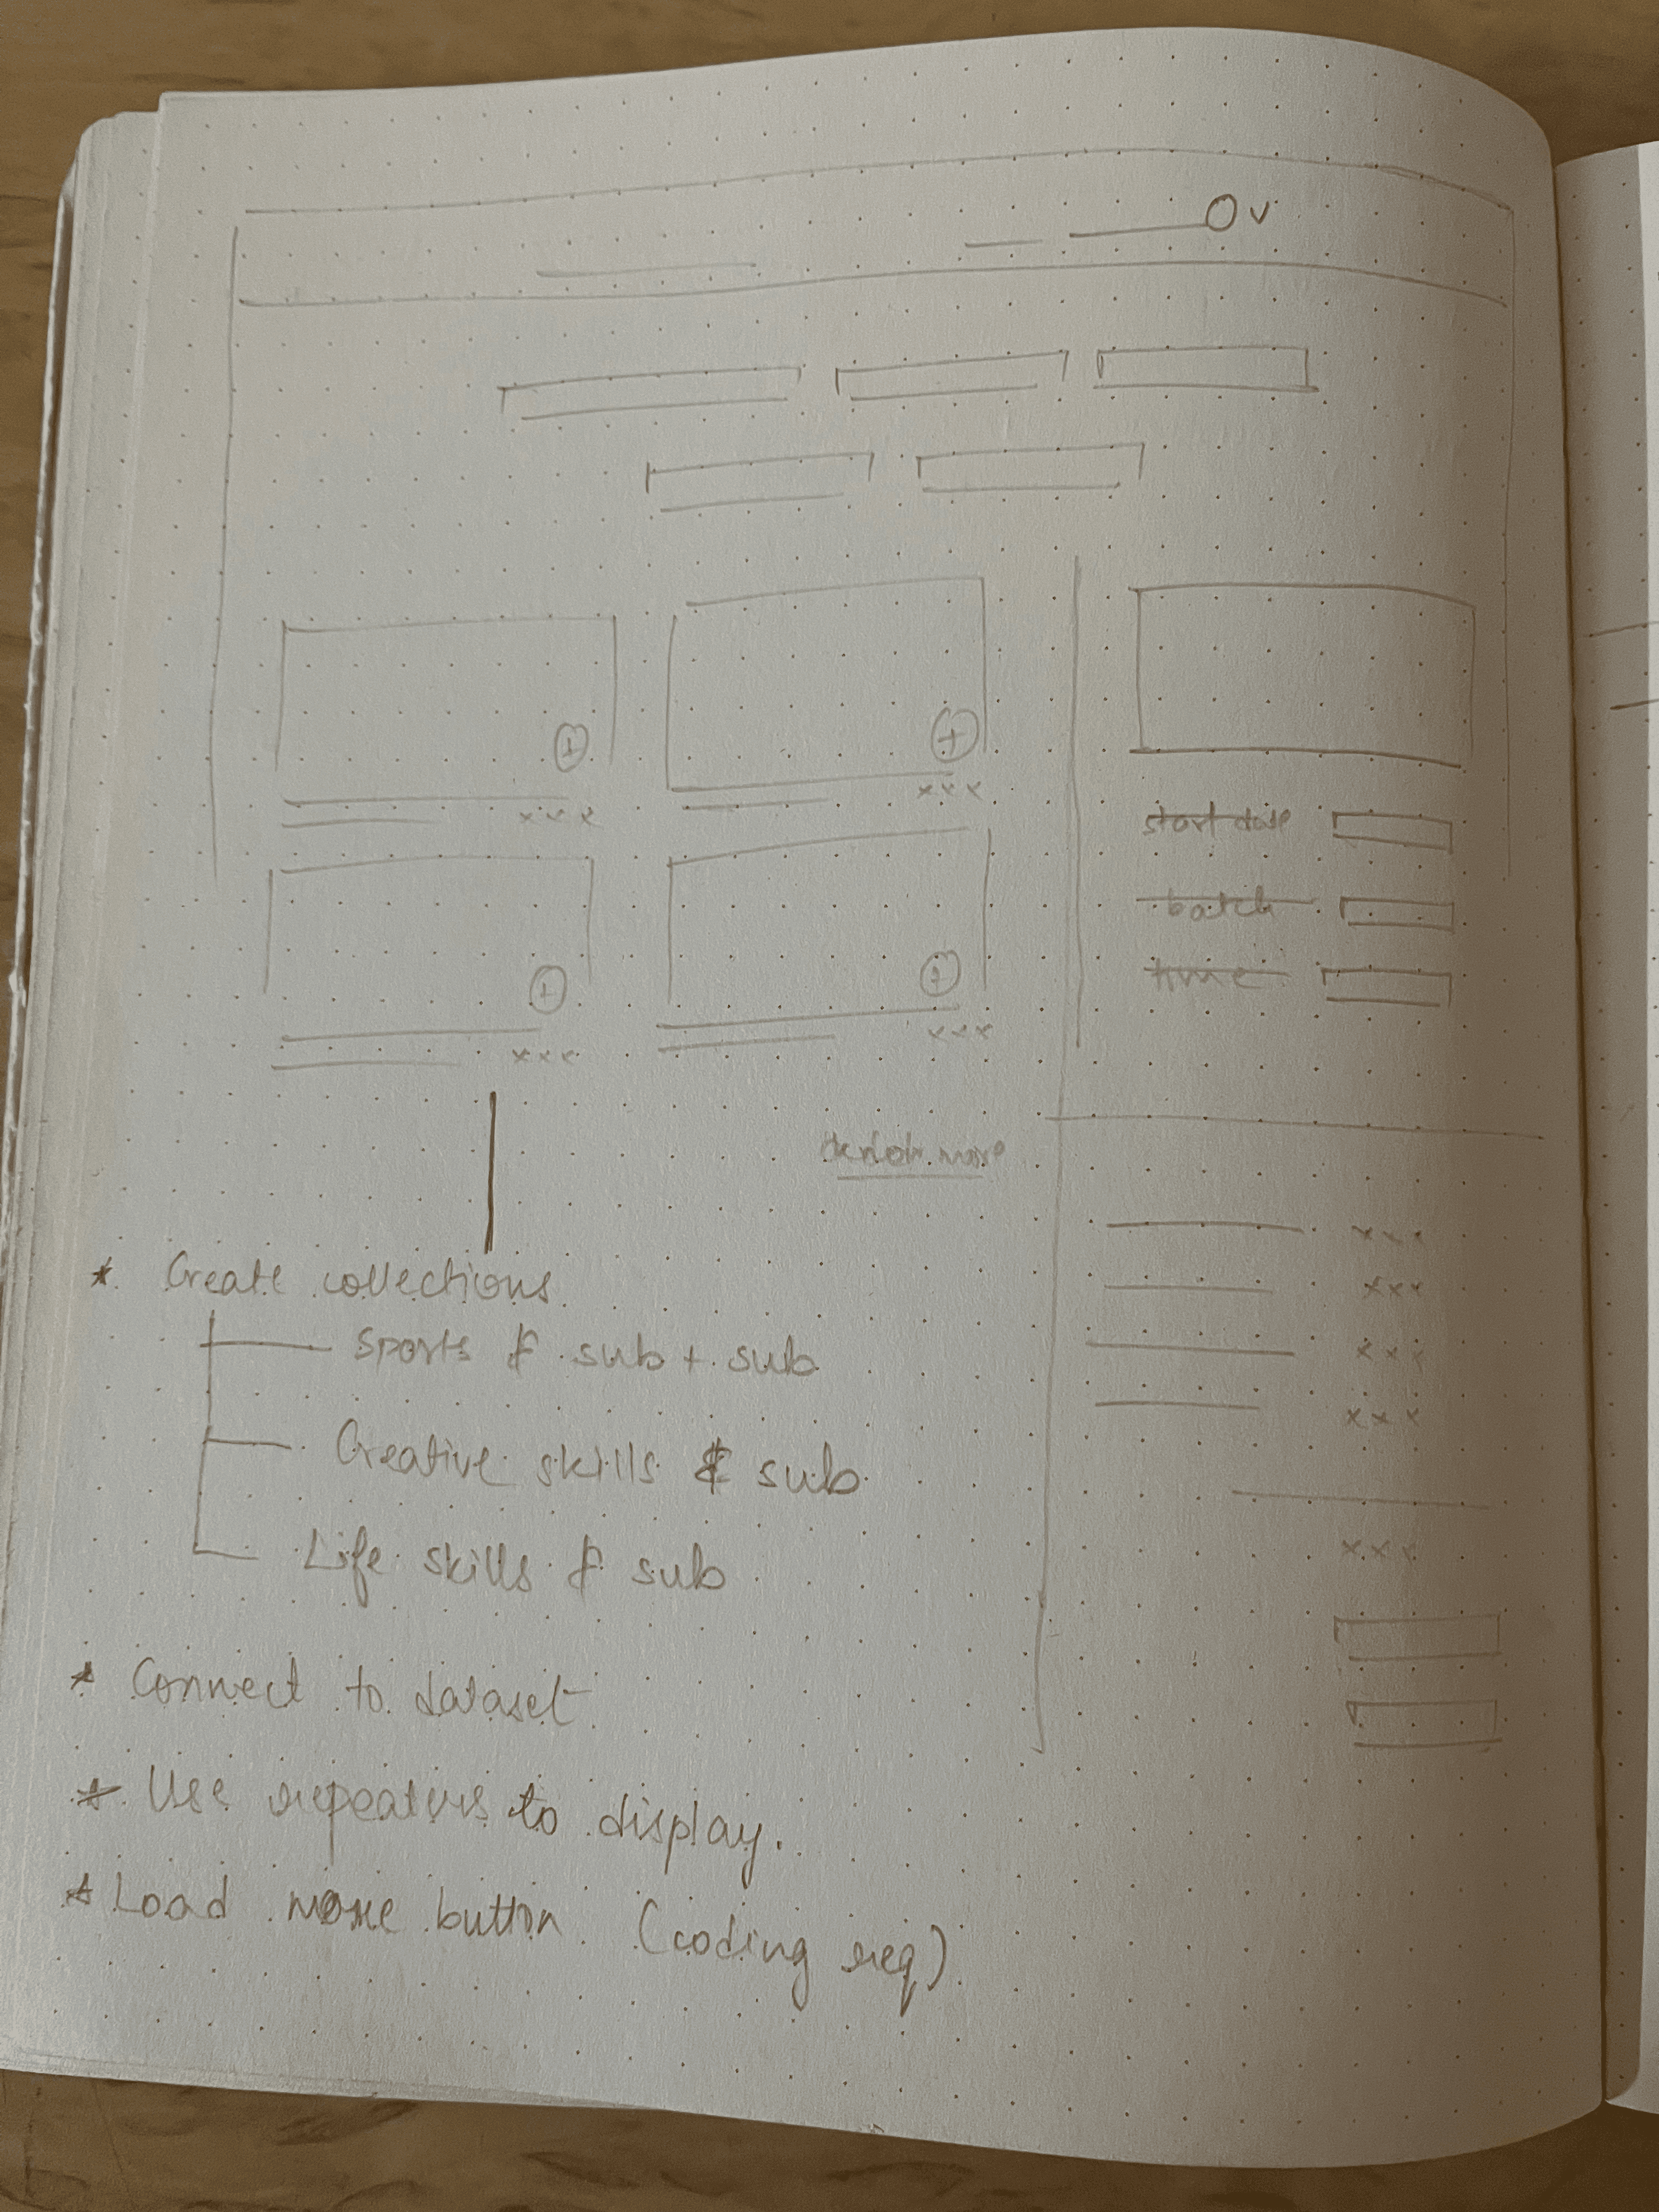 xxx
xxx
start date
batch
time
xxx
xxx
more
xxx
xxx
xxx
xxx
xxx
* Create collections
Sports & sub + sub
Creative skills & sub
Life skills & sub
* Connect to dataset
* Use repeaters to display.
* Load more button (coding req)